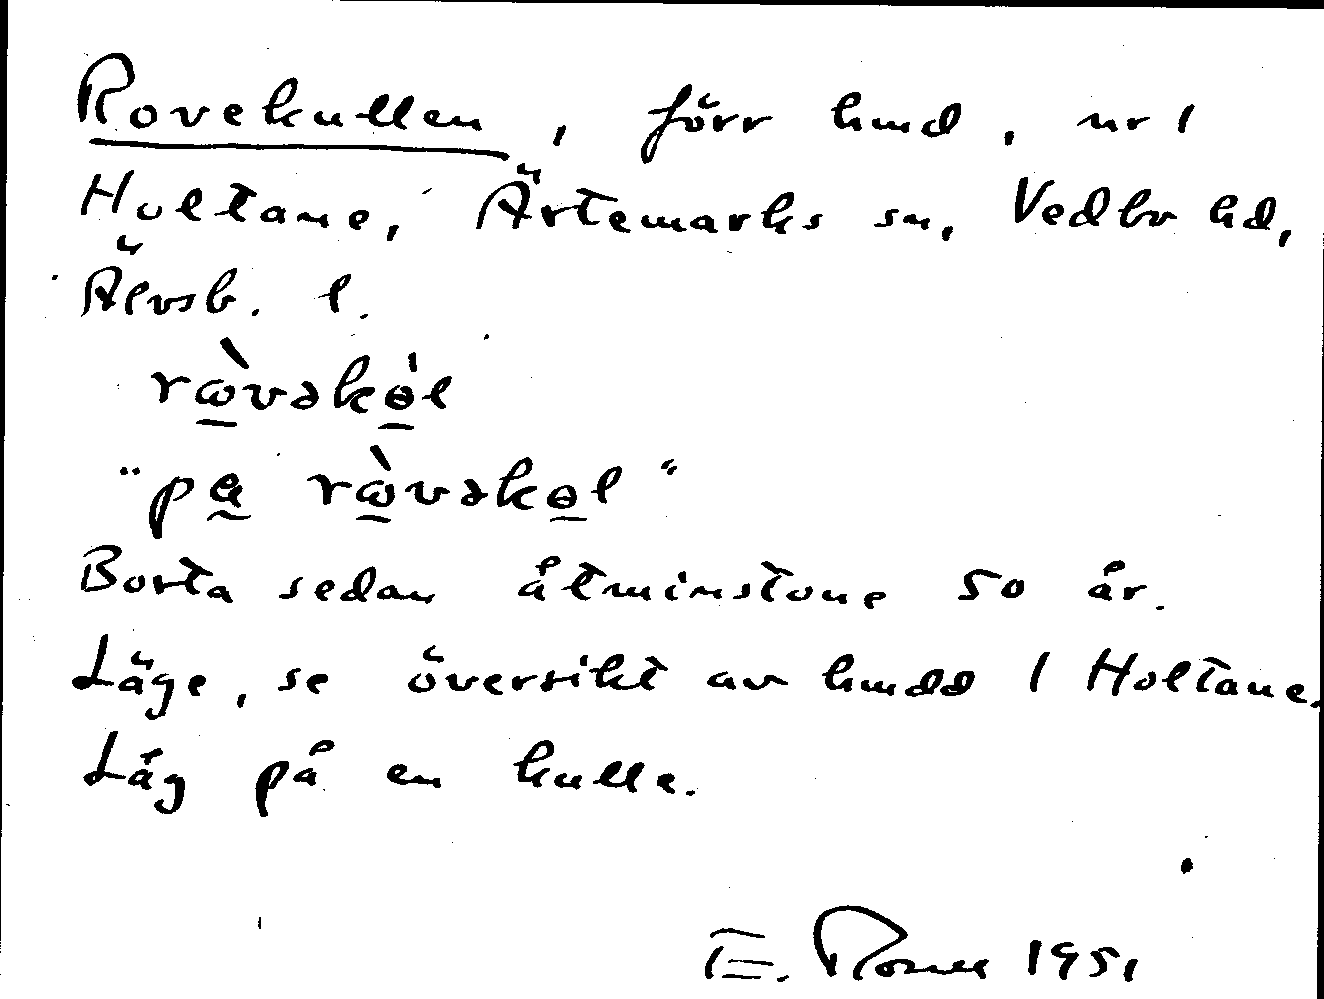 Rovekullen, förr hmd, nr 1
Holtane, Ärtemarks sn, Vedbo hd,
Älvsb. l.
rὼvəkɵ̍l
"pa rὼvəkɵl"
Borta sedan åtminstone 50 år.
Läge, se översikt av hmdd 1 Holtane.
Låg på en kulle.
E. 1951